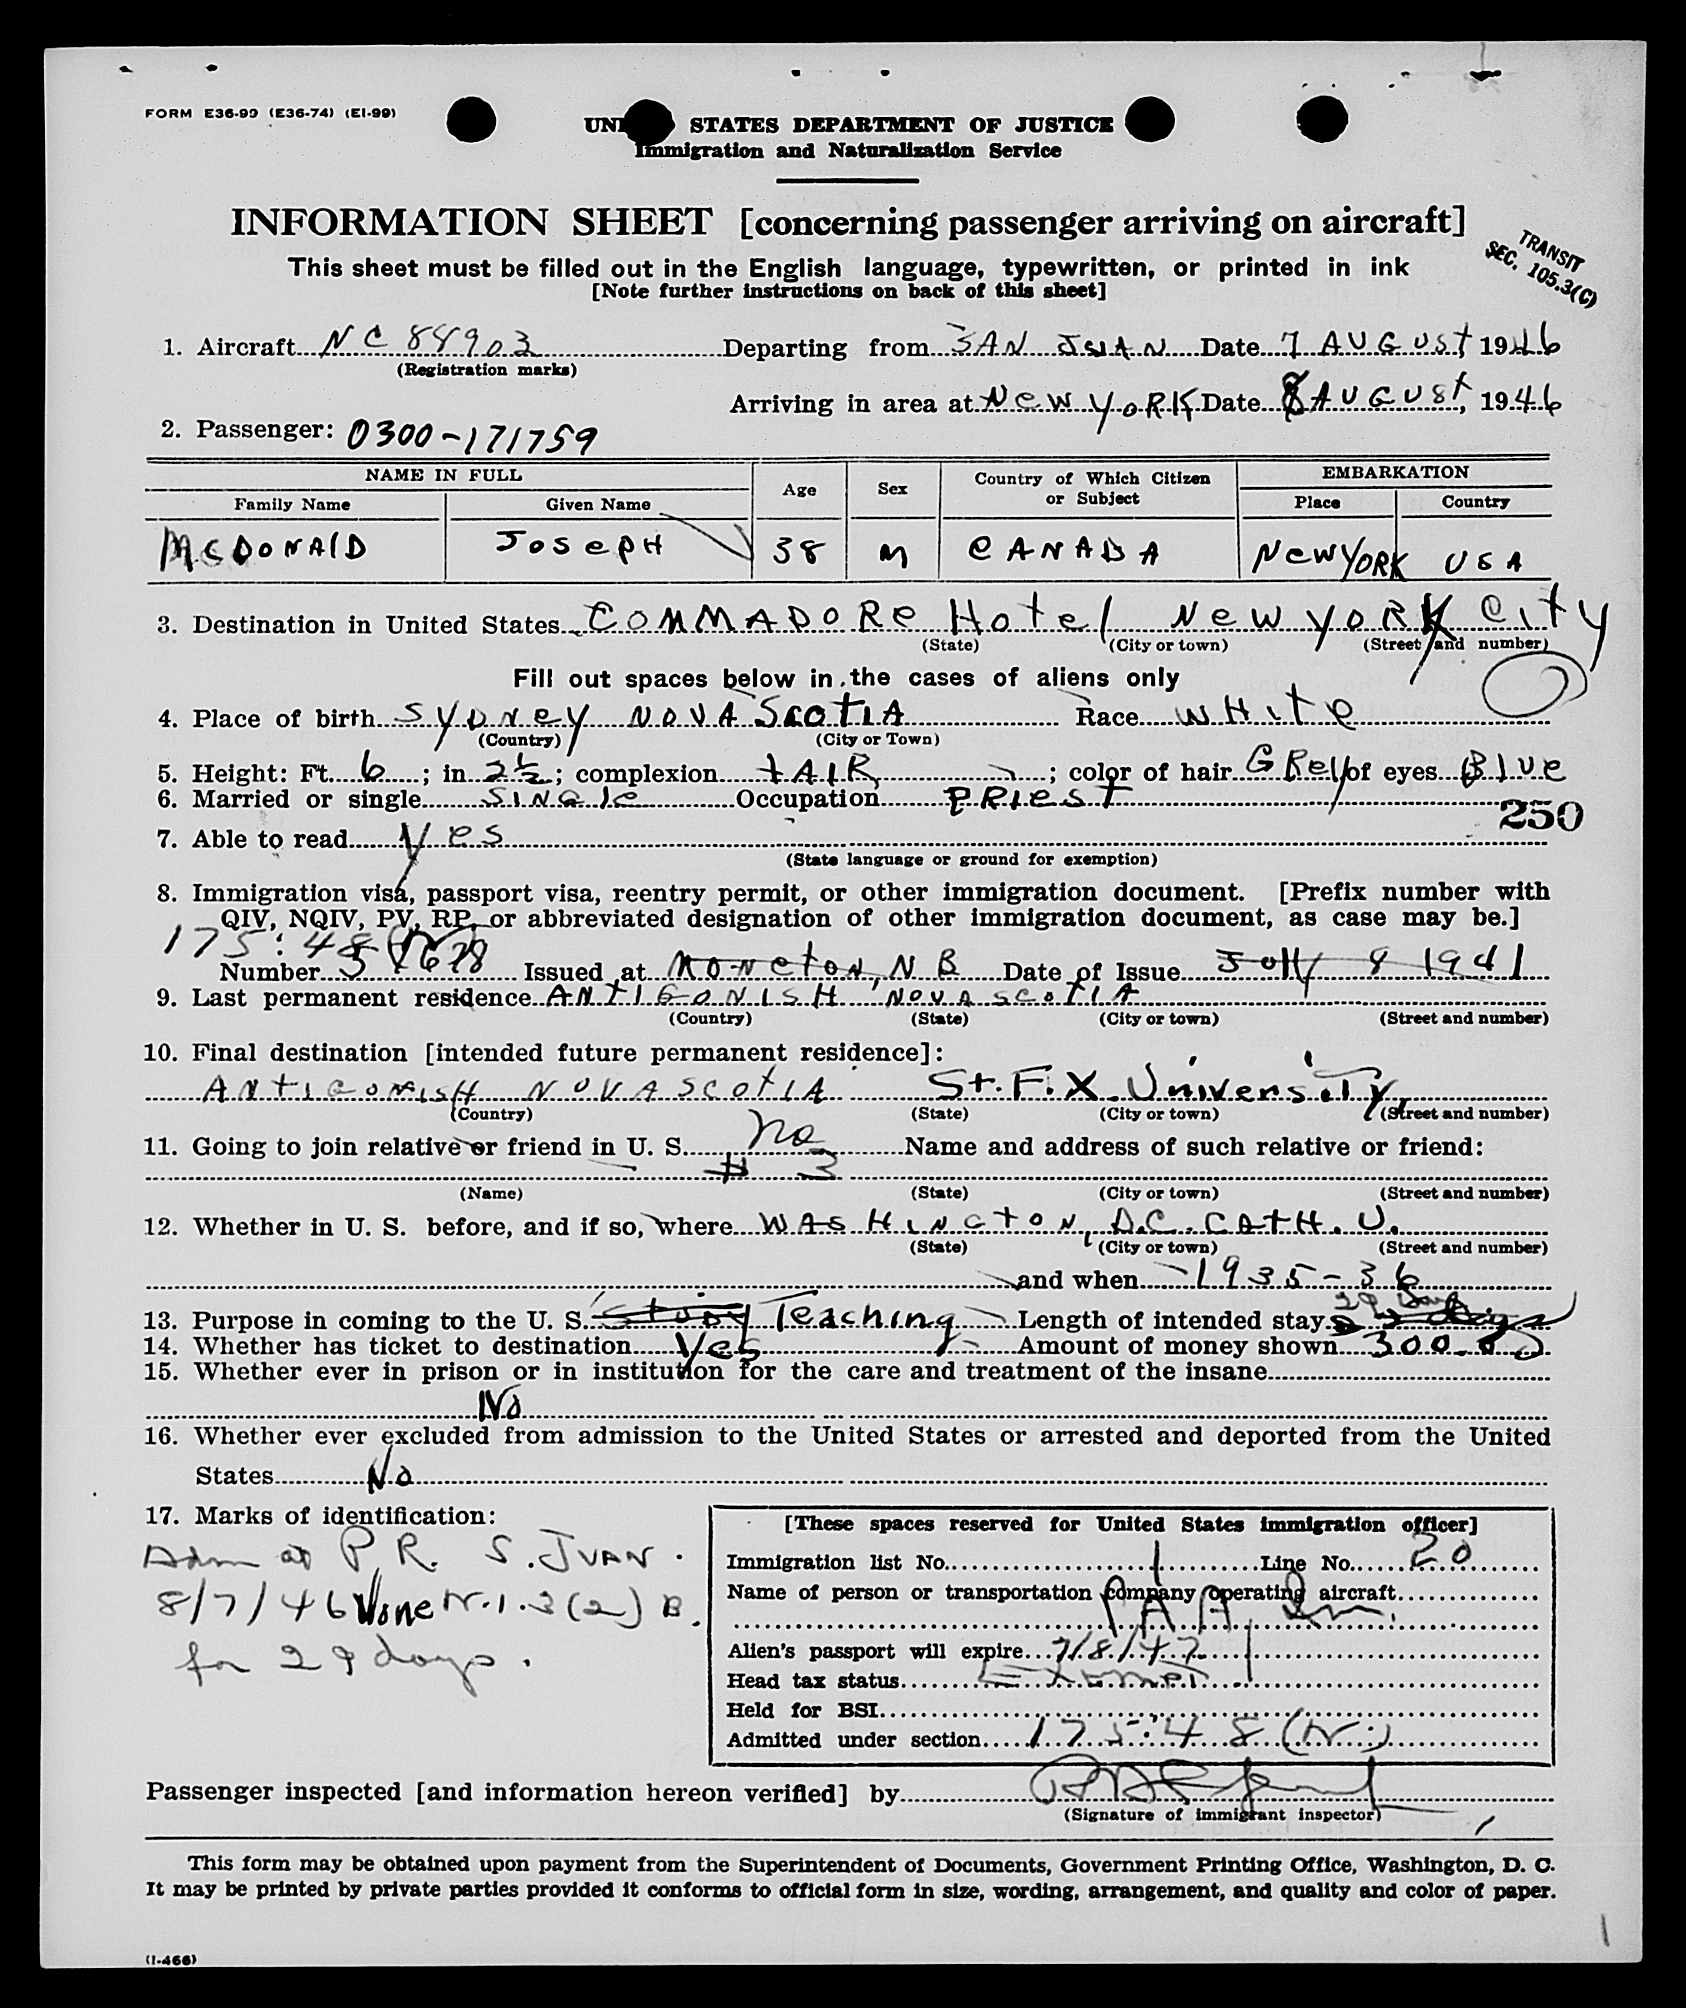 FORM E36-99 (E36-74) (EI-99)
UNI STATES DEPARTMENT OF JUSTICE
Immigration and Naturalization Service
INFORMATION SHEET [concerning passenger arriving on aircraft]
This sheet must be filled out in the English language, typewritten, or printed in ink
[Note further instructions on back of this sheet]
TRANSIT
SEC. 105.3(C)
1. Aircraft NC 88903 Departing from SAN JUAN Date 7 AUGUST 1946
(Registration marks)
Arriving in area at New YORK Date 8 AUGUST, 1946
2. Passenger: 0300-171759
NAME IN FULL Age Sex Country of Which Citizen or Subject EMBARKATION
Family Name Given Name Place Country
McDONAlD JosePH 38 M CANADA New YORK USA
3. Destination in United States COMMADORe Hotel New YORK City
(State) (City or town) (Street and number)
Fill out spaces below in the cases of aliens only
4. Place of birth SYDNey NOVA ScotIA Race WHite
(Country) (City or Town)
5. Height: Ft. 6; in. 2½; complexion fAIR; color of hair GRey of eyes Blue
6. Married or single SINGle Occupation PRIesT
250
7. Able to read Yes
(State language or ground for exemption)
8. Immigration visa, passport visa, reentry permit, or other immigration document. [Prefix number with
QIV, NQIV, PV, RP, or abbreviated designation of other immigration document, as case may be.]
175:48
Number Issued at MONctoN, N B Date of Issue JUly 8 1941
9. Last permanent residence ANTIGONISH NOVA SCOTIA
(Country) (State) (City or town) (Street and number)
10. Final destination [intended future permanent residence]:
ANTIGONISH NOVA SCOTIA St. F.X. University,
(Country) (State) (City or town) (Street and number)
11. Going to join relative or friend in U. S. No Name and address of such relative or friend:
# 3
(Name) (State) (City or town) (Street and number)
12. Whether in U. S. before, and if so, where WASHINGTON, D.C. CATH. U.
(State) (City or town) (Street and number)
and when 1935-36
29 Days
13. Purpose in coming to the U. S. Study Teaching Length of intended stay
14. Whether has ticket to destination Yes Amount of money shown 300.00
15. Whether ever in prison or in institution for the care and treatment of the insane
No
16. Whether ever excluded from admission to the United States or arrested and deported from the United
States No
17. Marks of identification:
Adm at P.R. S. JUAN.
8/7/46 None N.1.3(2) B.
for 29 days.
[These spaces reserved for United States immigration officer]
Immigration list No. 1 Line No. 20
Name of person or transportation company operating aircraft
P A A
Alien's passport will expire 7/8/47
Head tax status Exempt
Held for BSI
Admitted under section 175:48 (N.)
Passenger inspected [and information hereon verified] by
(Signature of immigrant inspector)
This form may be obtained upon payment from the Superintendent of Documents, Government Printing Office, Washington, D. C.
It may be printed by private parties provided it conforms to official form in size, wording, arrangement, and quality and color of paper.
1
(I-466)